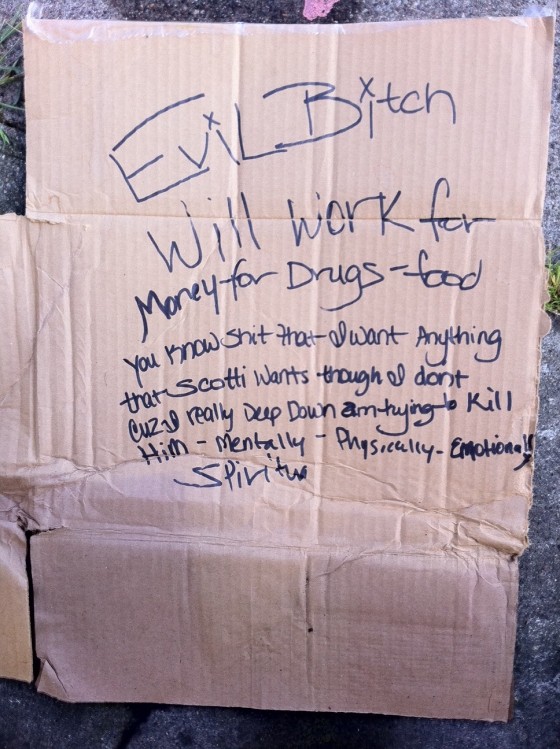 Evil Bitch
Will work for
Money-for Drugs-food
You Know shit that I want Anything
that Scotti wants though I dont
Cuz I really Deep Down am trying to Kill
Him - Mentally - Physically - Emotionally
Spiritu